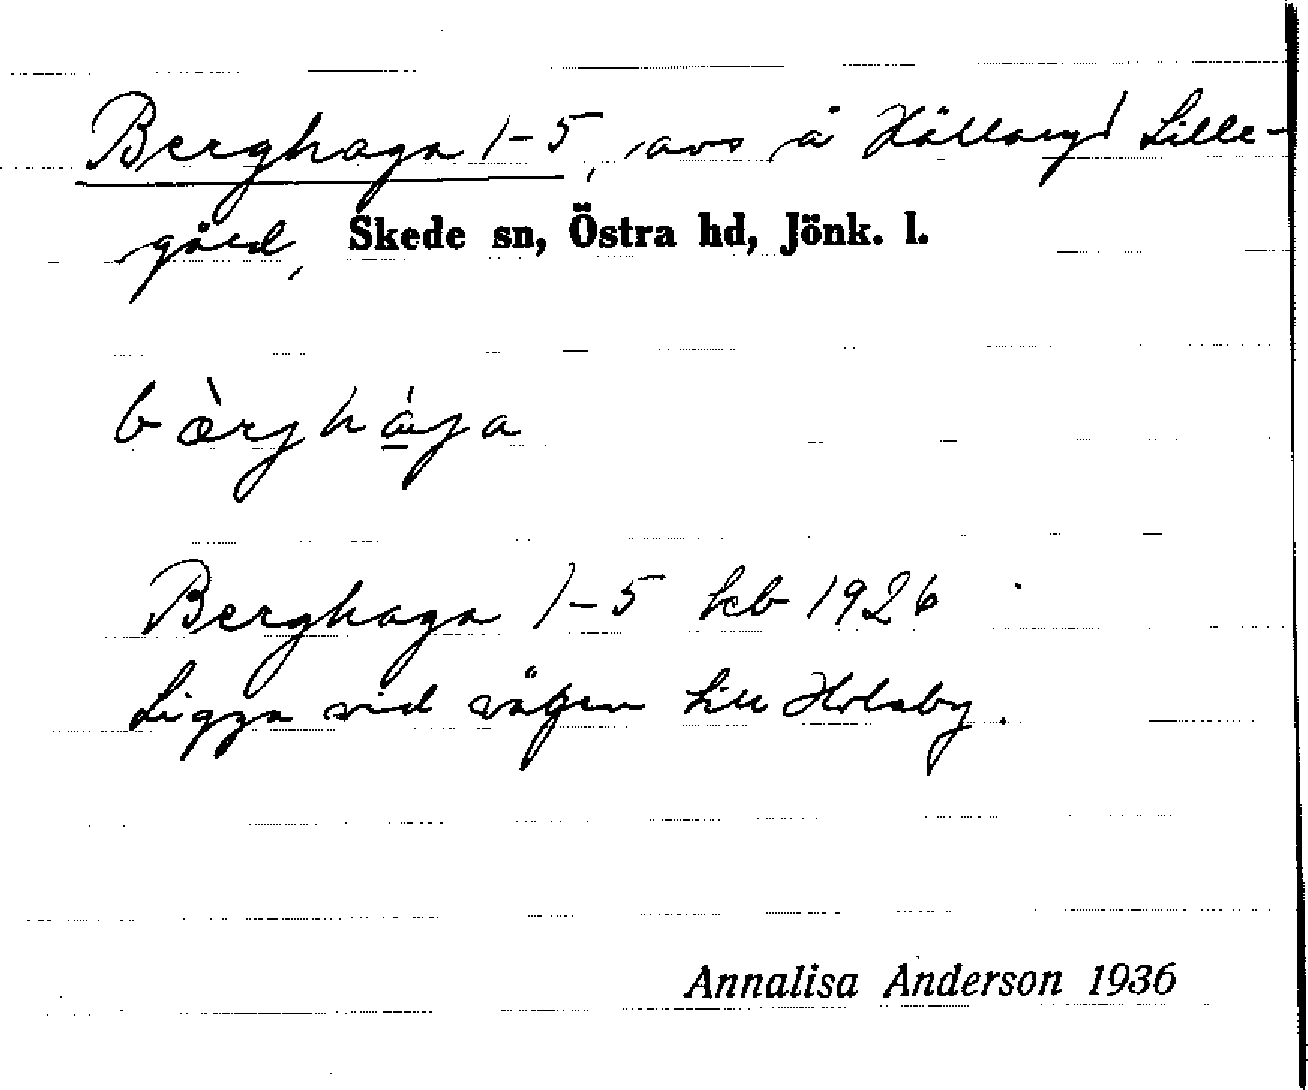 Berghaga 1-5, avs å Källaryd Lille-
gård, Skede sn, Östra hd, Jönk. l.
bæ̀rjhága
Berghaga 1-5 kb 1926
Ligga vid vägen till Holsby.
Annalisa Anderson 1936